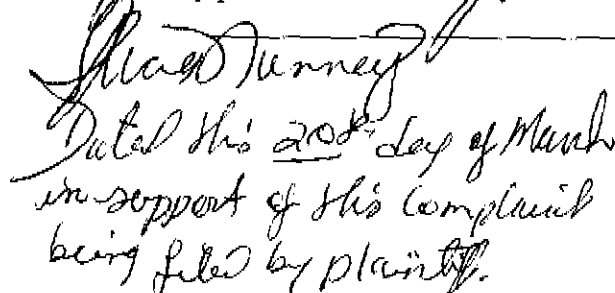 Dated this 20th day of March
in support of this Complaint
being filed by plaintiff.